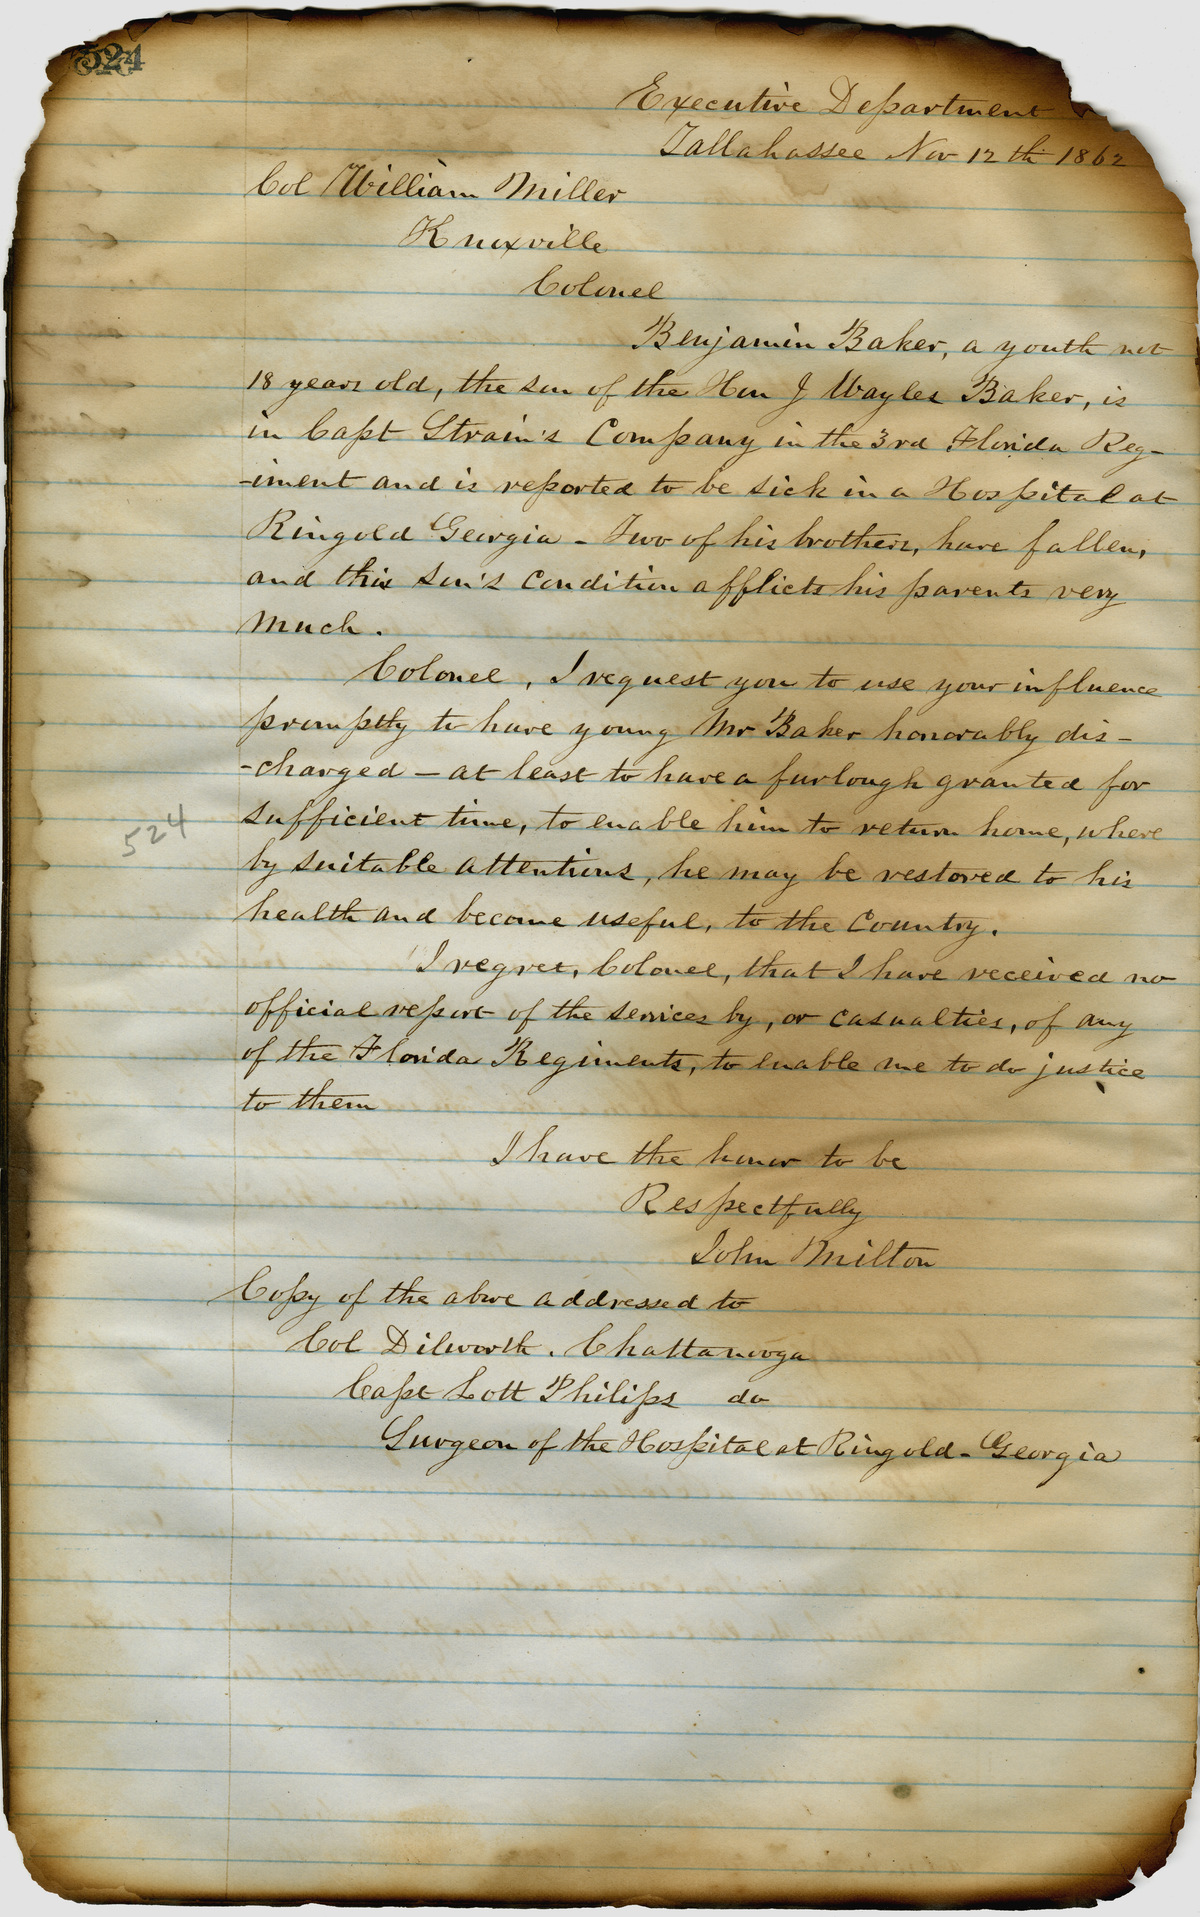 524
Executive Department
Tallahassee Nov 12th 1862
Col William Miller
Knoxville
Colonel
Benjamin Baker, a youth not
18 years old, the son of the Hon J Wayles Baker, is
in Capt Strain's Company in the 3rd Florida Reg-
-iment and is reported to be sick in a Hospital at
Ringold Georgia - Two of his brothers, have fallen,
and this son's condition afflicts his parents very
much.
Colonel, I request you to use your influence
promptly to have young Mr Baker honorably dis-
-charged - at least to have a furlough granted for
sufficient time, to enable him to return home, where
by suitable attentions, he may be restored to his
health and become useful, to the Country.
524
I regret, Colonel, that I have received no
official report of the services by, or casualties, of any
of the Florida Regiments, to enable me to do justice
to them
I have the honor to be
Respectfully
John Milton
Copy of the above addressed to
Col Dilworth. Chattanooga
Capt Lott Philips do
Surgeon of the Hospital at Ringold - Georgia